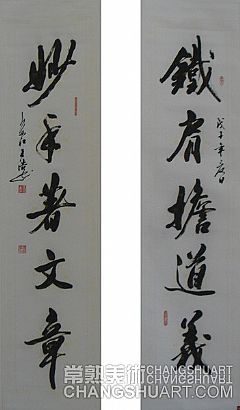 鐵肩擔道義
戊子年春日
妙手著文章
常熟美術
CHANGSHUART
CHANGSHUART.COM